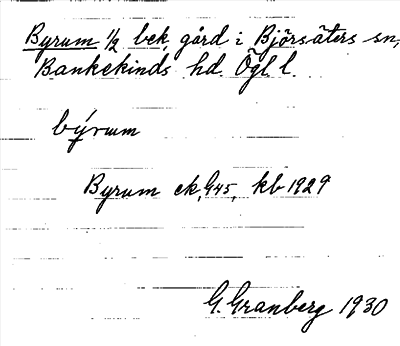 Byrum 1/2 bek, gård i Björsäters sn,
Bankekinds hd. Ögl. l.
býrum
Byrum ek, 945, kb 1929
G. Granberg 1930